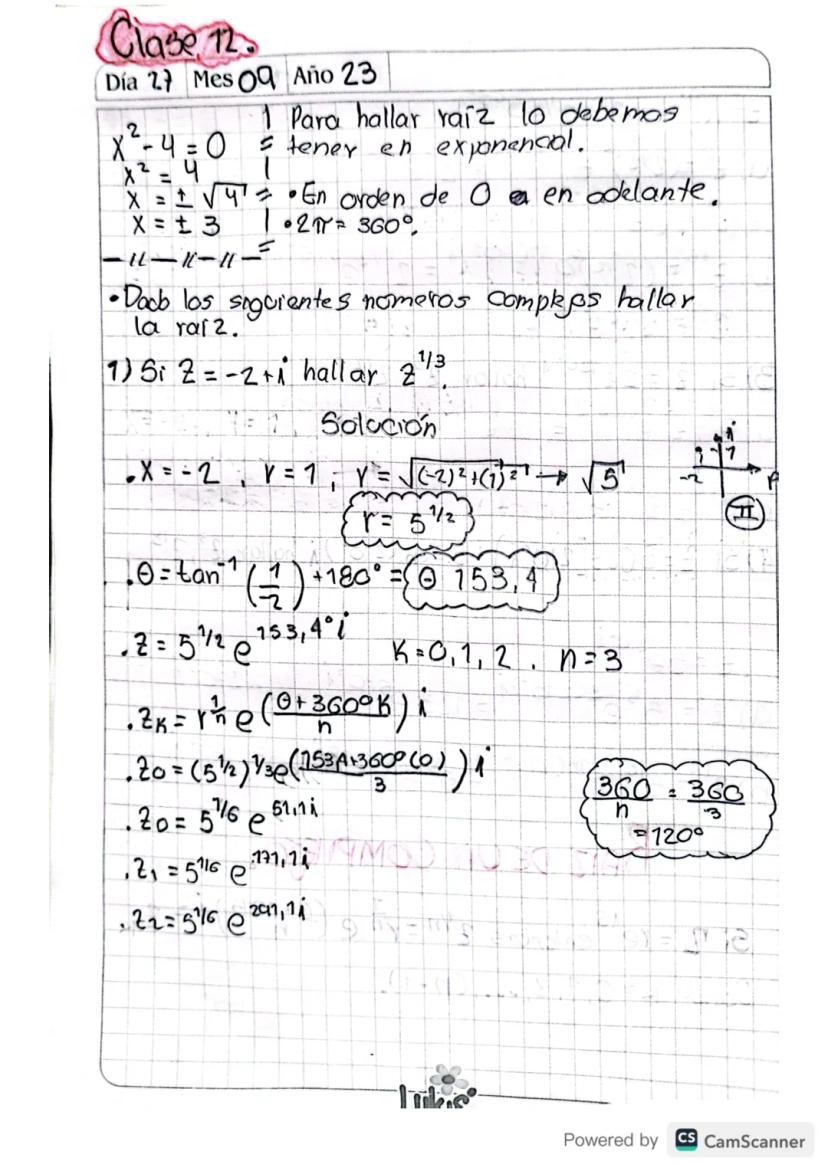 Clase 12.
Día 27 Mes 09 Año 23
x² - 4 = 0
x² = 4
x = ± √4
x = ± 3
Para hallar raíz lo debemos
tener en exponencal.
• En orden de 0 a en adelante.
• 2π = 360°.
• Dado los siguientes números complejos hallar
la raíz.
1) Si Z = -2+i hallar z^1/3.
Solución
• x = -2, Y = 1; r = √(-2)²+(1)² → √5
i 1
-2
II
r = 5^1/2
• θ = tan⁻¹ (1/-2) + 180° = θ 153,4
• Z = 5^1/2 e^153,4° i K = 0, 1, 2. n = 3
• Zk = r^1/n e^((θ + 360°K)/n) i
• Z0 = (5^1/2)^1/3 e^((153,4+360°(0))/3) i
360/n = 360/3
= 120°
• Z0 = 5^1/6 e^51,1i
• Z1 = 5^1/6 e^171,1i
• Z2 = 5^1/6 e^291,1i
lükis
Powered by CS CamScanner